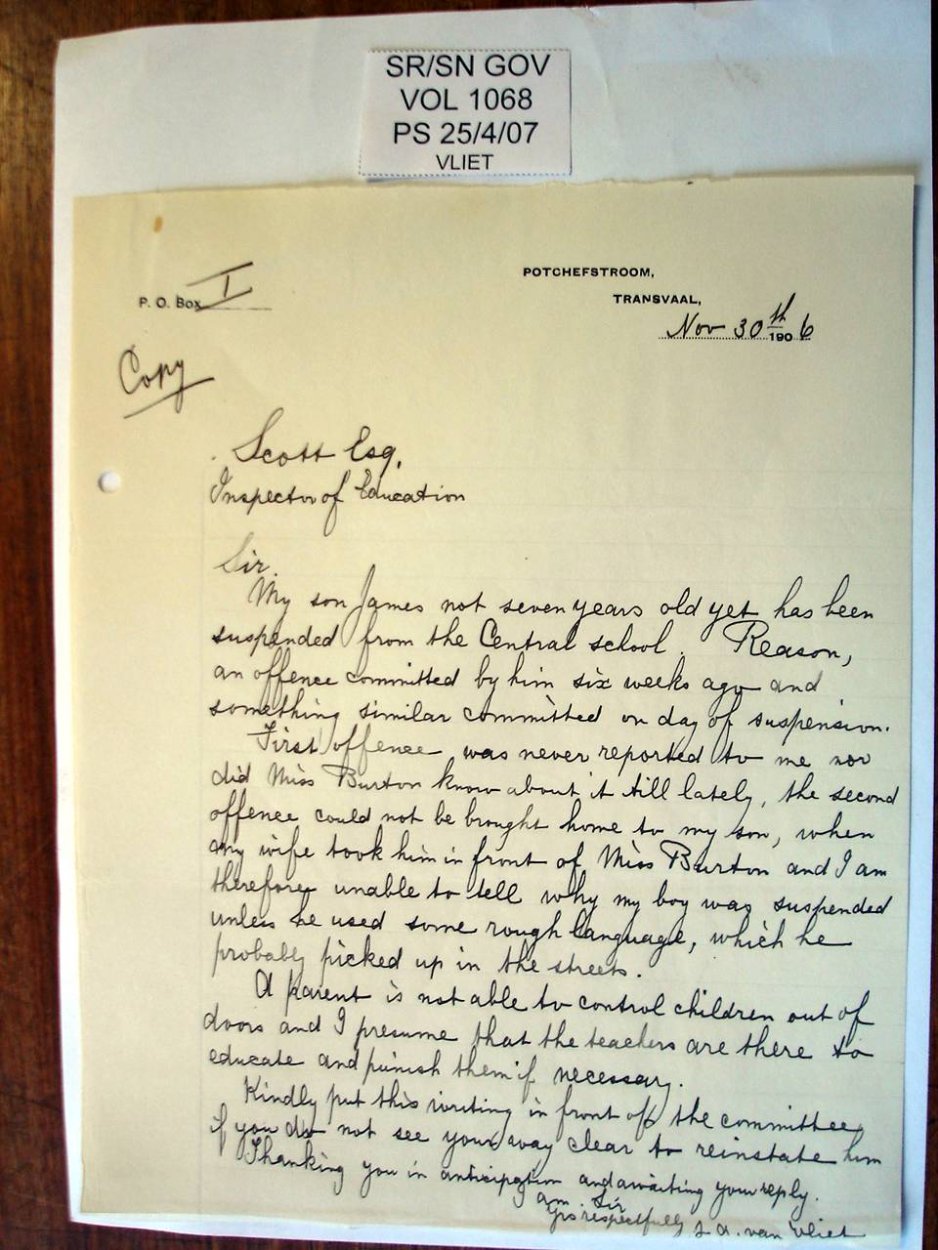 SR/SN GOV
VOL 1068
PS 25/4/07
VLIET
POTCHEFSTROOM,
P. O. Box I
TRANSVAAL,
Nov 30th 1906
Copy
Scott Esq.
Inspector of Education
Sir.
My son James not seven years old yet has been
suspended from the Central school. Reason,
an offence committed by him six weeks ago and
something similar committed on day of suspension.
First offence was never reported to me nor
did Miss Burton know about it till lately, the second
offence could not be brought home to my son, when
my wife took him in front of Miss Burton and I am
therefore unable to tell why my boy was suspended
unless he used some rough language, which he
probably picked up in the streets.
A parent is not able to control children out of
doors and I presume that the teachers are there to
educate and punish them if necessary.
Kindly put this writing in front of the committee,
if you do not see your way clear to reinstate him
Thanking you in anticipation and awaiting your reply.
I am Sir
Yrs respectfully J. A. van Vliet